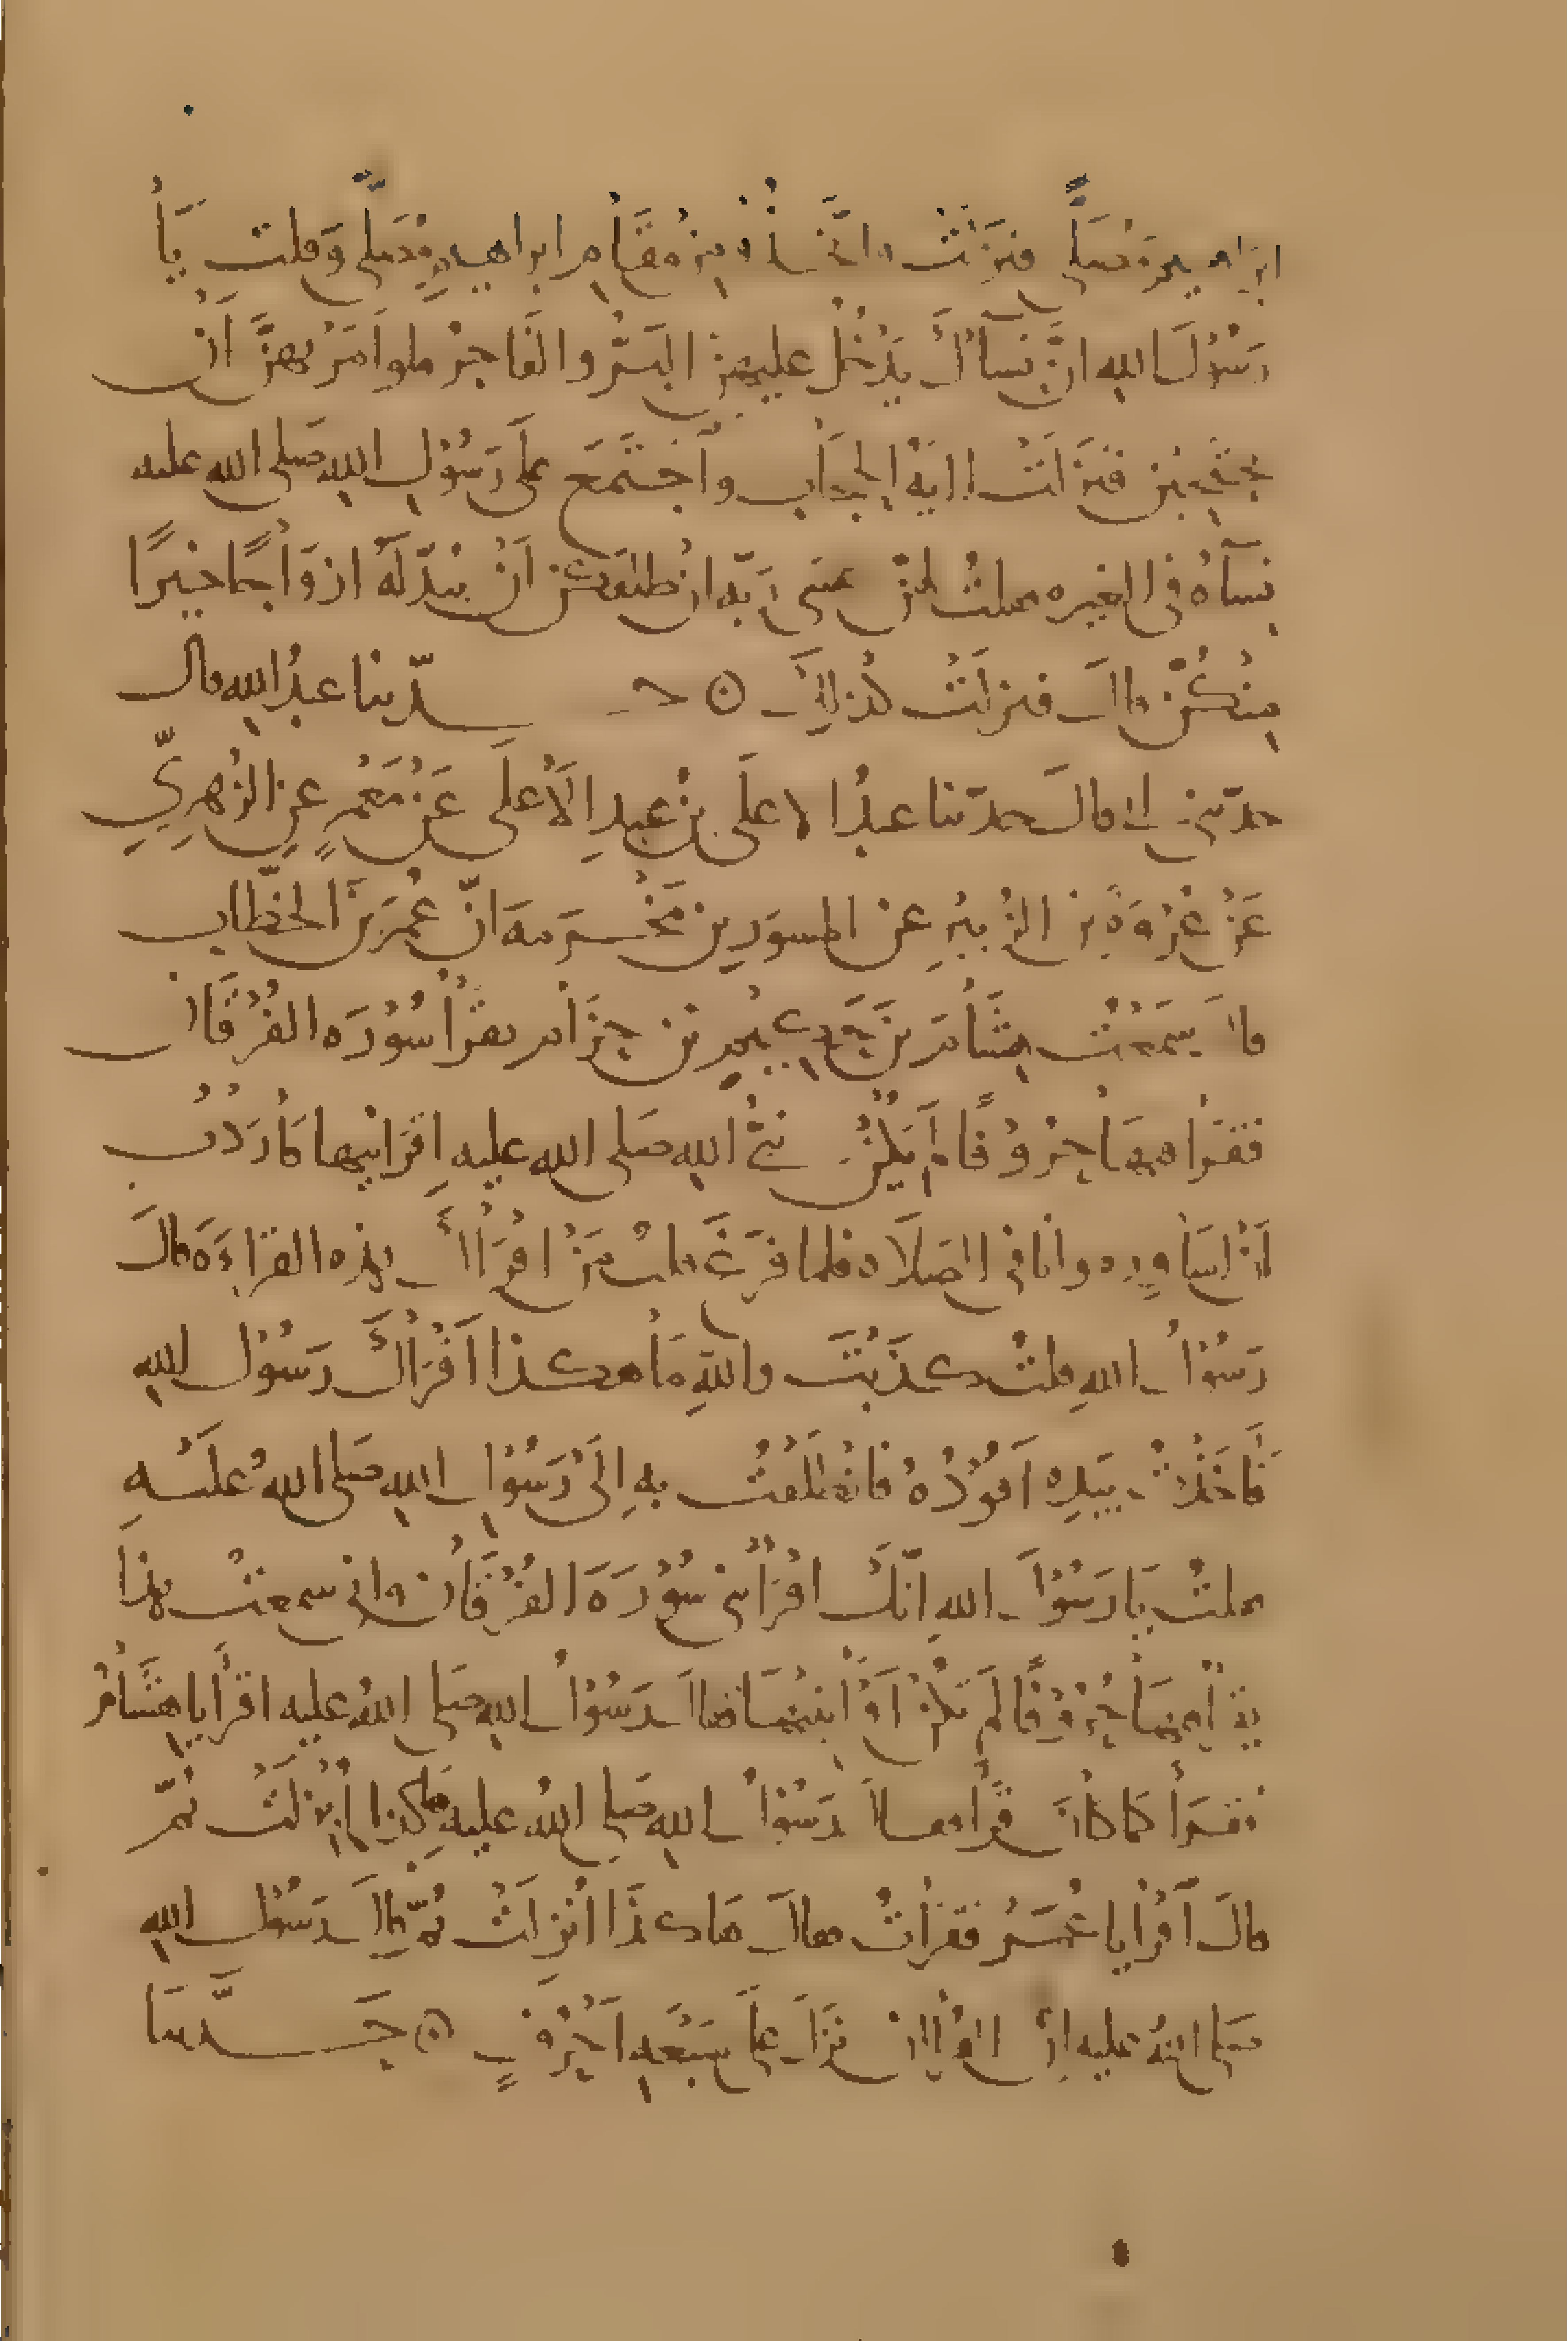 ابراهيم مصلًى فنزلت واتخذوا من مقام ابراهيم مصلى وقلت يا
رسول الله ان نساءك يدخل عليهن البر والفاجر فلو امرتهن ان
يحتجبن فنزلت اية الحجاب واجتمع على رسول الله صلى الله عليه
نساؤه في الغيره فقلت لهن عسى ربه ان طلقكن ان يبدله ازواجا خيرًا
منكن قال فنزلت كذلك ح‍ـدّثنا عبد الله قال
حدّثني ابي قال حدثنا عبد الاعلى بن عبد الاعلى عن معمرٍ عن الزهريّ
عن عروة بن الزبير عن المسور بن مخرمه انّ عمر بن الخطاب
قال سمعت هشام بن حكيم بن حزام يقرأ سورة الفرقان
فقرا فيها حروفًا لم يكن نبي الله صلى الله عليه اقرانيها فاردت
ان اساوره وانا في الصلاه فلما فرغ قلت من اقراك هذه القراءة قال
رسول الله قلت كذبت والله ما هكذا اقراك رسول الله
فاخذت بيده اقوده فانطلقت به الى رسول الله صلى الله عليه
فقلت يا رسول الله انّك اقراتني سورة الفرقان واني سمعت هذا
يقرأ فيها حروفًا لم تكن اقراتنيها فقال رسول الله صلى الله عليه اقرأ يا هشام
فقرأ كما كان قرأ فقال رسول الله صلى الله عليه هكذا انزلت ثمّ
قال اقرأ يا عمر فقرات فقال هاكذا انزلت ثمّ قال رسول الله
صلى الله عليه ان القران نزل على سبعه احرف حـدّثنا